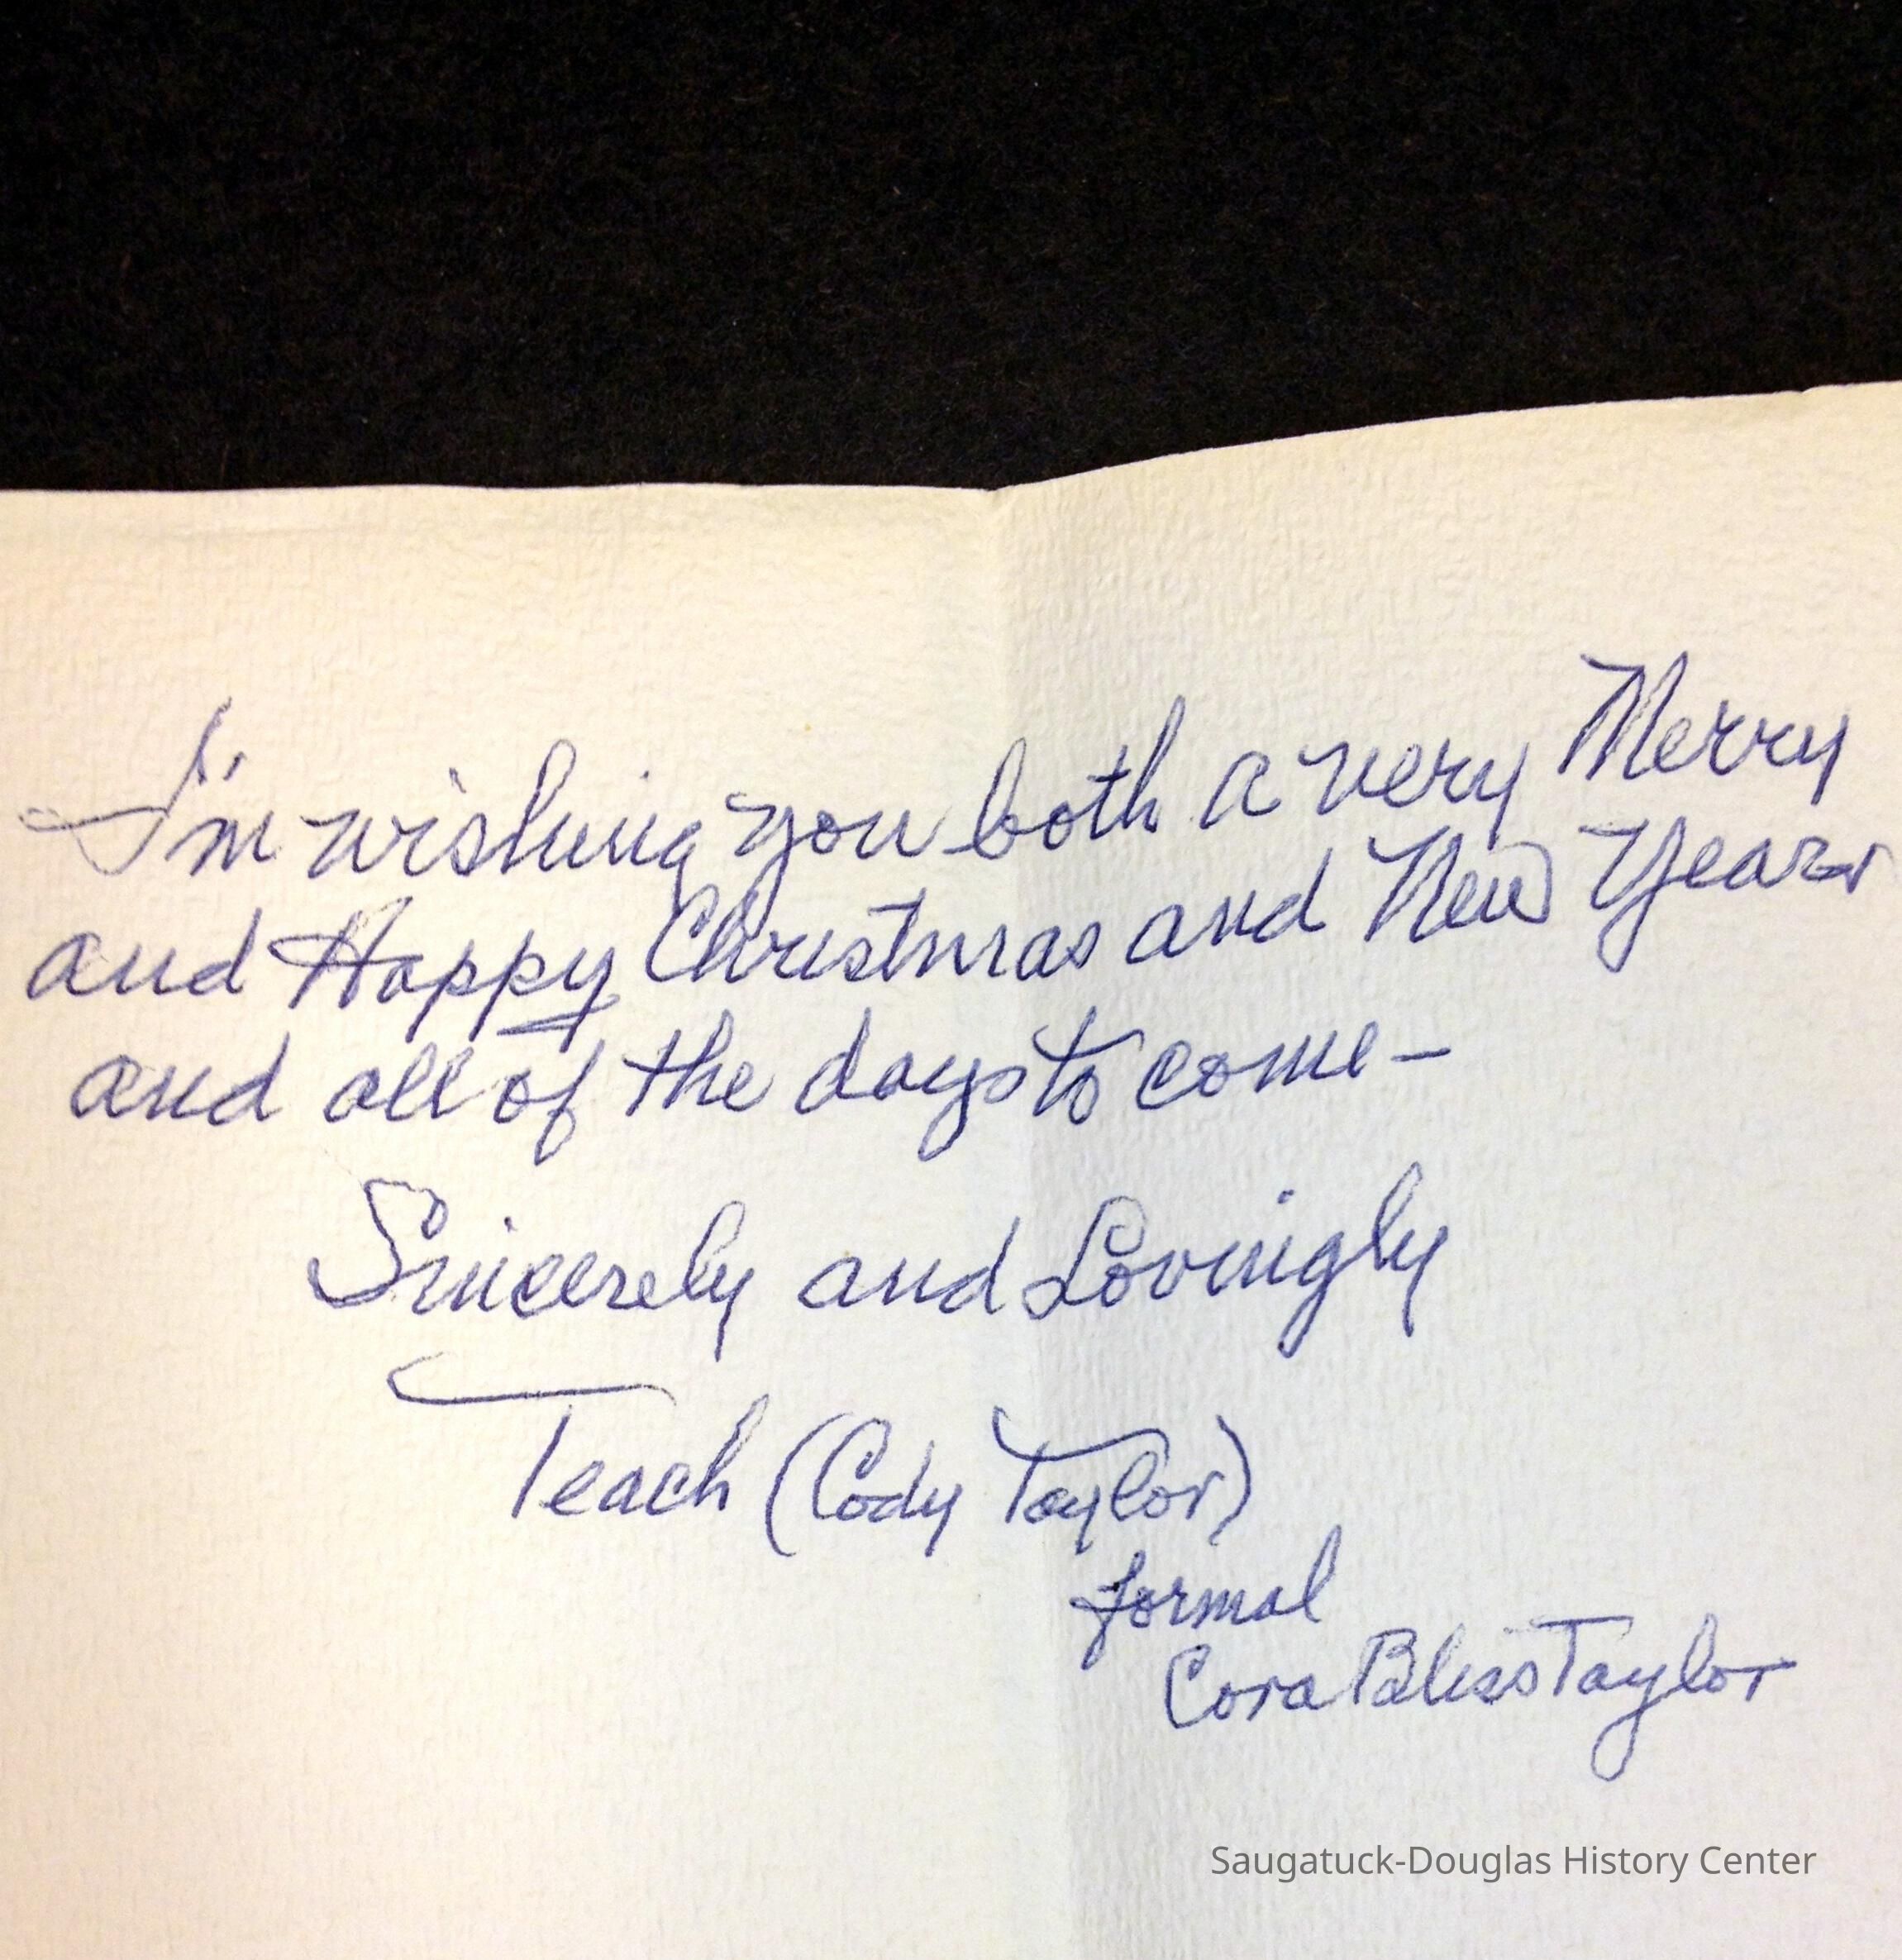 I'm wishing you both a very Merry
and Happy Christmas and New Year
and all of the days to come—
Sincerely and Lovingly
Teach (Cody Taylor)
formal
Cora Bliss Taylor
Saugatuck-Douglas History Center